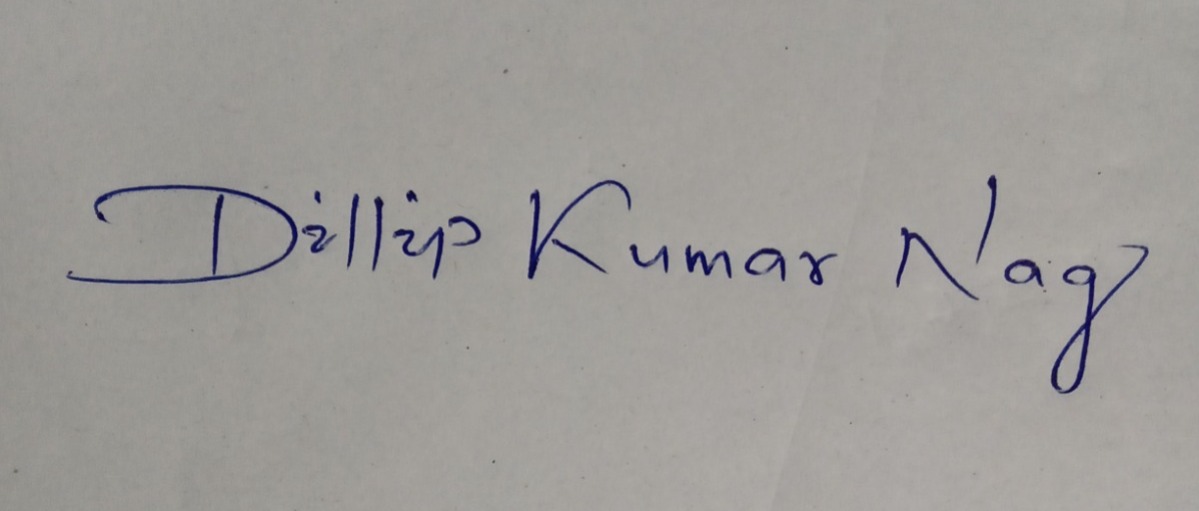 Dillip Kumar Nag